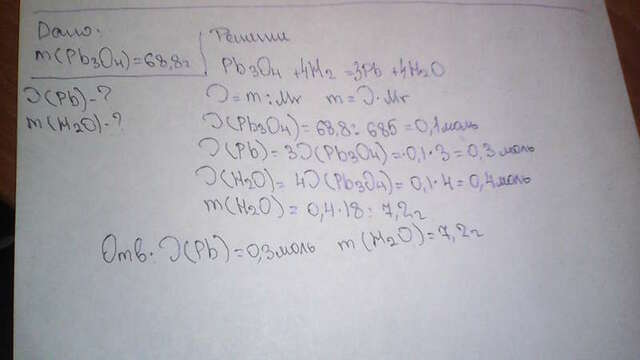 Дано:
m(Pb3O4)=68,8г
ν(Pb)-?
m(H2O)-?
Решение
Pb3O4 +4H2 =3Pb +4H2O
ν=m:Mr m=ν·Mr
ν(Pb3O4)=68,8:685=0,1моль
ν(Pb)=3ν(Pb3O4)=0,1·3=0,3моль
ν(H2O)=4ν(Pb3O4)=0,1·4=0,4моль
m(H2O)=0,4·18=7,2г
Отв: ν(Pb)=0,3моль m(H2O)=7,2г